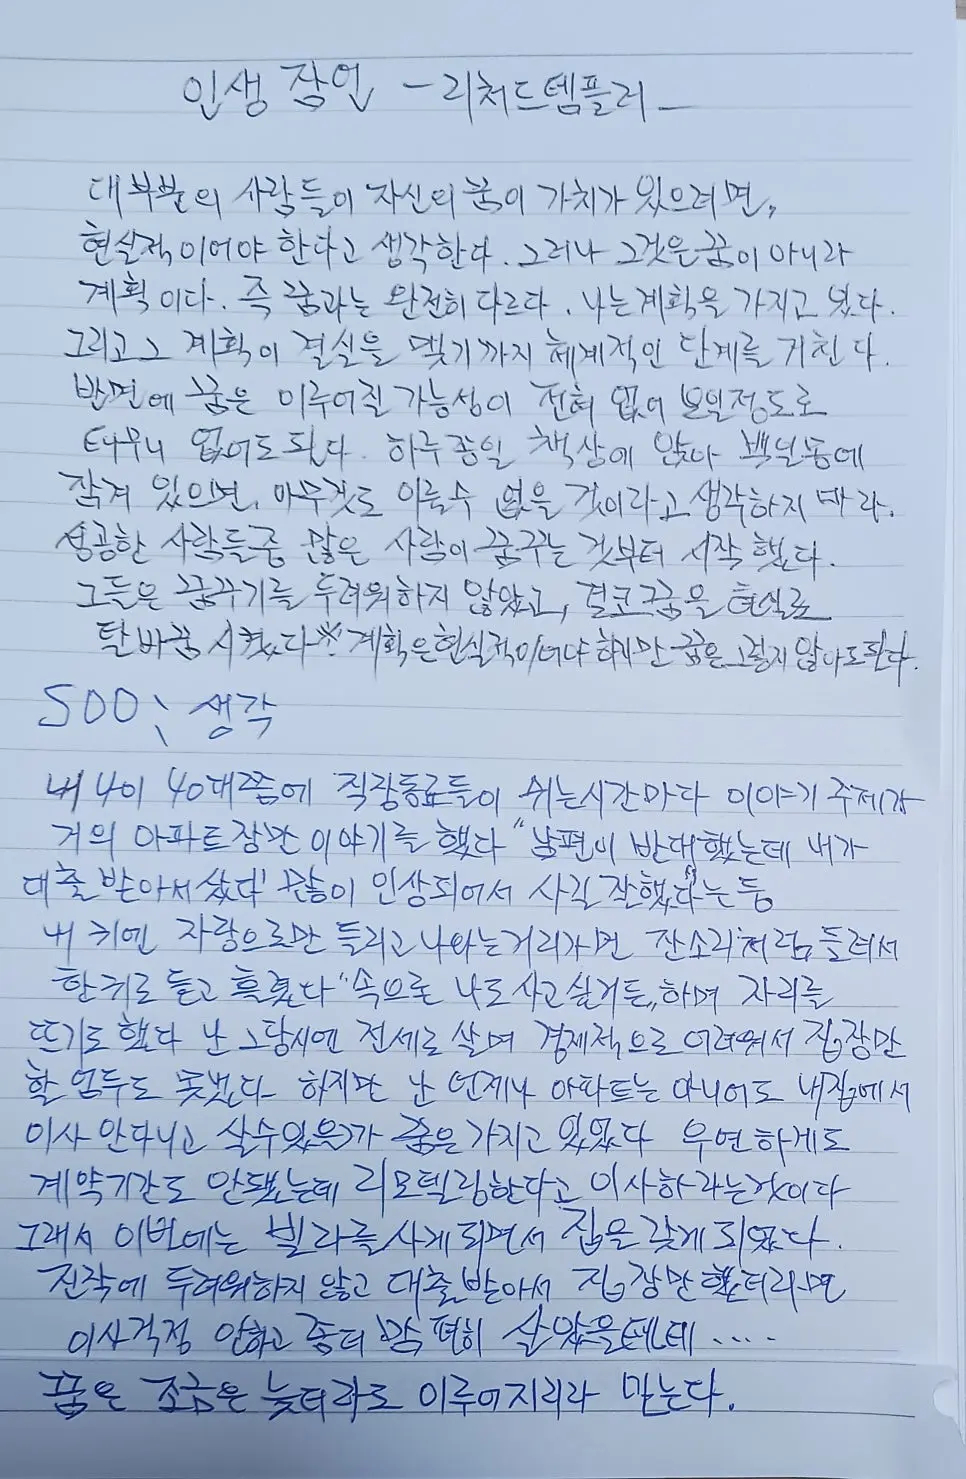 인생 잠언 - 리처드템플러 -
대부분의 사람들이 자신의 꿈이 가치가 있으려면,
현실적이어야 한다고 생각한다. 그러나 그것은 꿈이 아니라
계획이다. 즉 꿈과는 완전히 다르다. 나는 계획을 가지고 있다.
그리고 그 계획이 결실을 맺기까지 체계적인 단계를 거친다.
반면에 꿈은 이루어질 가능성이 전혀 없어 보일정도로
터무니 없어도 된다. 하루종일 책상에 앉아 백일몽에
잠겨 있으면, 아무것도 이룰수 없을 것이라고 생각하지 마라.
성공한 사람들중 많은 사람이 꿈꾸는 것부터 시작했다.
그들은 꿈꾸기를 두려워하지 않았고, 결코 꿈을 현실로
탈바꿈 시켰다 ※ 계획은 현실적이어야 하지만 꿈은 그렇지 않아도된다.
SOO; 생각
내 나이 40대쯤에 직장동료들이 쉬는시간마다 이야기 주제가
거의 아파트장만 이야기를 했다 "남편이 반대했는데 내가
대출받아서 샀다' 많이 인상되어서 사길 잘했다"는 등
내 귀엔 자랑으로만 들리고 나와는거리가먼 잔소리처럼 들려서
한귀로 듣고 흘렸다 "속으로 나도 사고싶거든, 하며 자리를
뜨기도 했다 난 그당시엔 전세로 살며 경제적으로 어려워서 집장만
할 엄두도 못냈다. 하지만 난 언제나 아파트는 아니어도 내집에서
이사 안다니고 살수있은가 꿈은 가지고 있었다 우연하게도
계약기간도 안됐는데 리모델링한다고 이사하라는것이다
그래서 이번에는 빌라를 사게되면서 집을 갖게 되었다.
진작에 두려워하지 않고 대출받아서 집장만 했더라면
이사걱정 안하고 좀더 맘 편히 살았을텐데 ....
꿈은 조금은 늦더라도 이루어지리라 믿는다.